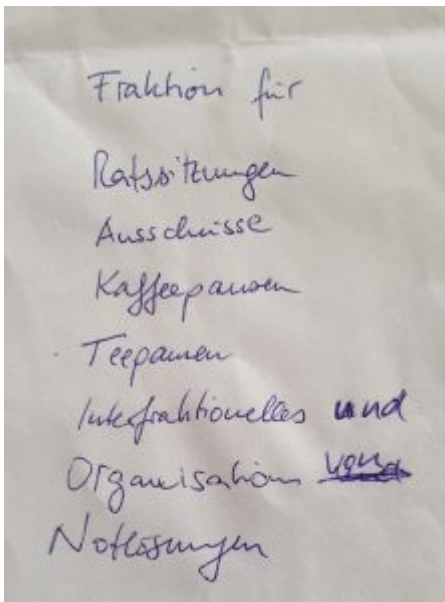 Fraktion für
Ratssitzungen
Ausschüsse
Kaffeepausen
Teepausen
Interfraktionelles und
Organisation von
Notlösungen